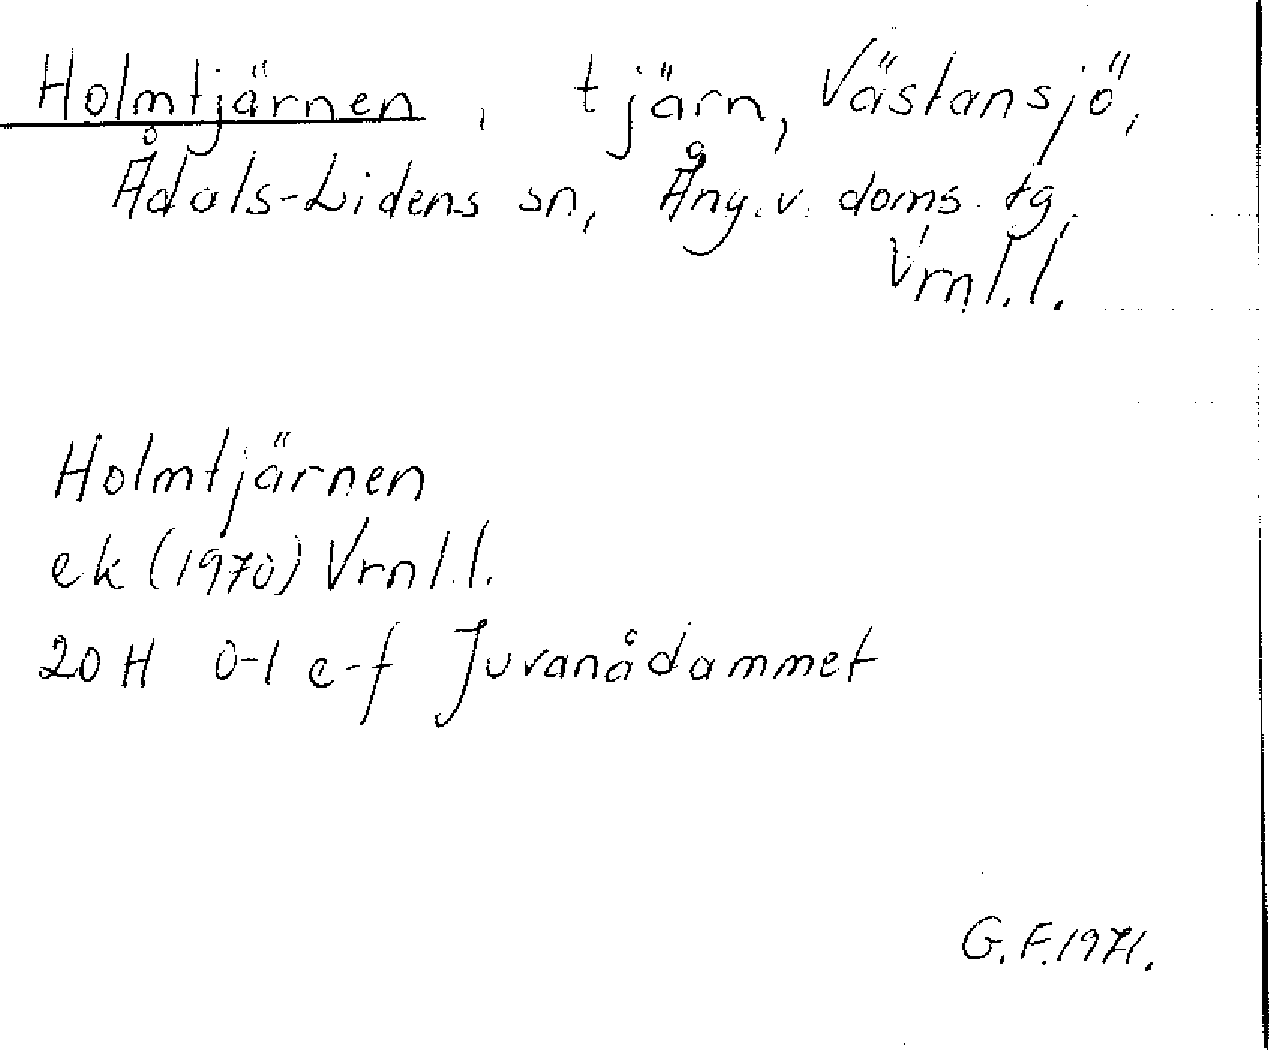 Holmtjärnen, tjärn, Västansjö,
Ådals-Lidens sn, Ång.v. doms. tg,
Vrnl.l.
Holmtjärnen
ek (1970) Vrnl.l.
20 H 0-1 e-f Juvanådammet
G.F.1971.